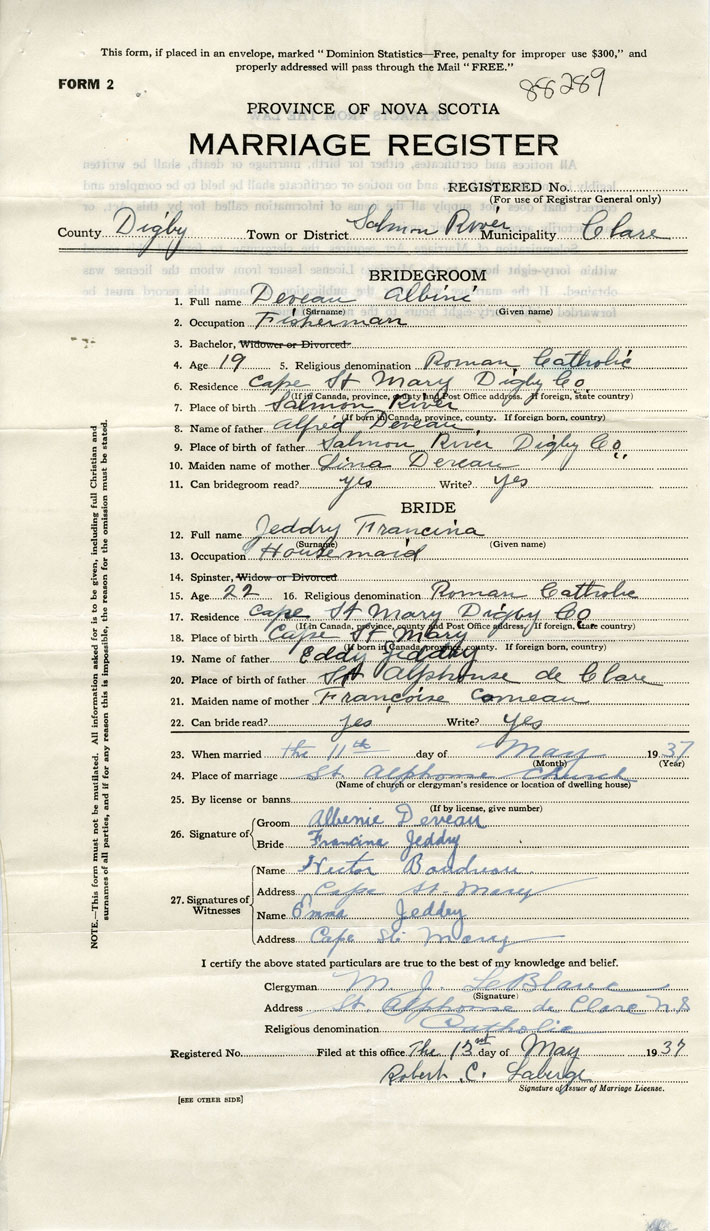 This form, if placed in an envelope, marked "Dominion Statistics—Free, penalty for improper use $300," and
properly addressed will pass through the Mail "FREE."
FORM 2
88289
PROVINCE OF NOVA SCOTIA
MARRIAGE REGISTER
REGISTERED No.
(For use of Registrar General only)
County Digby Town or District Salmon River Municipality Clare
BRIDEGROOM
1. Full name Deveau Albini
(Surname) (Given name)
2. Occupation Fisherman
3. Bachelor, Widower or Divorced
4. Age 19 5. Religious denomination Roman Catholic
6. Residence Cape St Mary Digby Co
(If in Canada, province, county and Post Office address. If foreign, state country)
7. Place of birth Salmon River
(If born in Canada, province, county. If foreign born, country)
8. Name of father Alfred Deveau
9. Place of birth of father Salmon River Digby Co
10. Maiden name of mother Lina Deveau
11. Can bridegroom read? yes Write? yes
BRIDE
12. Full name Jeddry Francina
(Surname) (Given name)
13. Occupation Housemaid
14. Spinster, Widow or Divorced
15. Age 22 16. Religious denomination Roman Catholic
17. Residence Cape St Mary Digby Co
(If in Canada, province, county and Post Office address. If foreign, state country)
18. Place of birth Cape St Mary
(If born in Canada, province, county. If foreign born, country)
19. Name of father Eddy Jeddry
20. Place of birth of father St Alphonse de Clare
21. Maiden name of mother Françoise Comeau
22. Can bride read? yes Write? yes
23. When married the 11th day of May 1937
(Month) (Year)
24. Place of marriage St Alphonse Church
(Name of church or clergyman's residence or location of dwelling house)
25. By license or banns
(If by license, give number)
26. Signature of
Groom Albenie Deveau
Bride Francine Jeddry
27. Signatures of Witnesses
Name Victor Boudreau
Address Cape St. Mary
Name Emma Jeddry
Address Cape St. Mary
I certify the above stated particulars are true to the best of my knowledge and belief.
Clergyman M. J. LeBlanc
(Signature)
Address St. Alphonse de Clare N.S
Religious denomination Catholic
Registered No. Filed at this office The 13 day of May 1937
Robert C. Laberge
Signature of Issuer of Marriage License.
[SEE OTHER SIDE]
NOTE.—This form must not be mutilated. All information asked for is to be given, including full Christian and
surnames of all parties, and if for any reason this is impossible, the reason for the omission must be stated.